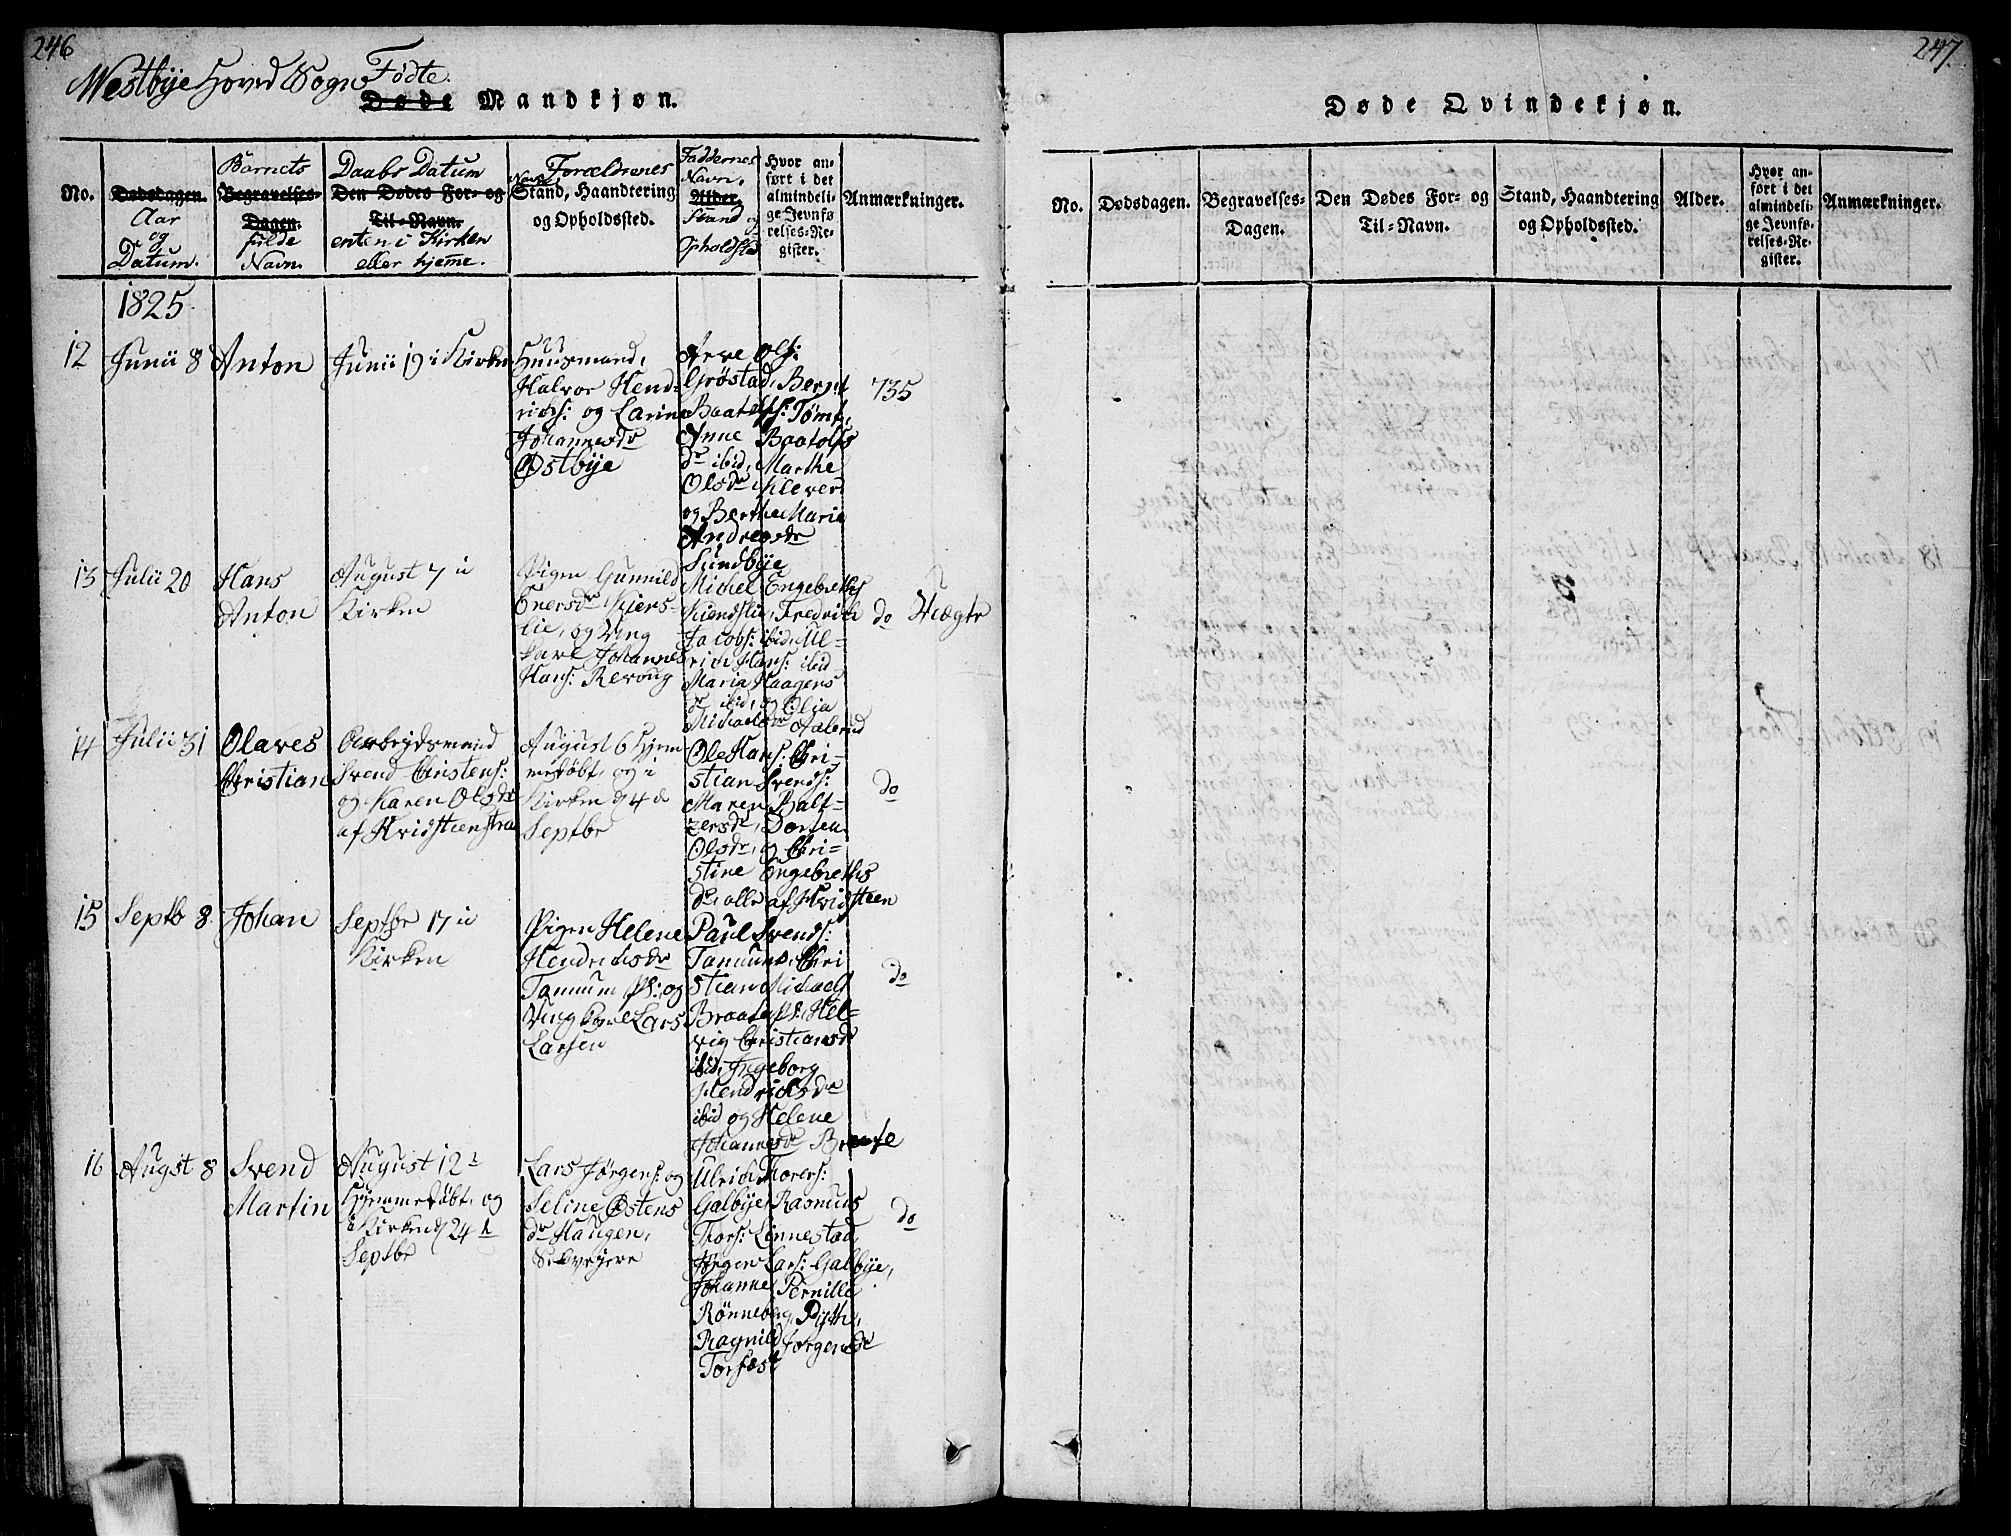 246
Westbye Hoved Sogn Fødte.
Døde Mandkjøn.
No.
Dødsdagen.
Aar
og
Datum.
Barnets
Begravelses-
Dagen.
fulde
Navn.
Daabs Datum
Den Dødes For- og
Til-Navn.
enten i Kirken
eller hjemme.
Forældrenes
Navn, Stand, Haandtering
og Opholdssted.
Faddernes
Navn,
Alder.
Stand og
Opholdsted
Hvor an-
ført i det
almindeli-
ge Jevnfø-
relses-Re-
gister.
Anmærkninger.
1825
12
Junii 8
Anton
Junii 19 i Kirken
Huusmand,
Halvor Hend-
richs: og Larine
Johannesdr
Østbye
Arve Ols:
Grøstad, Bernt
Baatolfs: Tømt,
Anne Baatolfs
dr ibid, Marthe
Olsdr Klever
og Berthe Marie
Andreasdr
Sundbye
735
13
Julii 20
Hans
Anton
August 7 i
Kirken
Pigen Gunnild
Enersdr Kjers-
lie, og Ung
karl Johannes
Hans: Revoug
Michel Engebreths
Kiendslie, Fredrich
Jacobs: ibid, Ul-
rich Hans: ibid
Maria Haagens
dr ibid, og Olia
Michaelsdr Aalerud
do
Uægte
14
Julii 31
Olaves
Christian
Arbeydsmand
Svend Christens:
og Karen Olsdr
af Hvidsteenstran
August 6 hjem
medøbt, og i
Kirken d 4 de
Septbr
Ole Hans: Chri-
stian Svends:
Maren Balt-
zersdr, Dorthea
Olsdr, og Chri-
stine Engebreths
dr, alle af Hvidsteen
do
15
Septb 8
Johan
Septbr 17 i
Kirken
Pigen Helene
Hendrichsdr
Tannum Pl: og
Ung karl Lars
Larsen
Paul Svends:
Tannum, Chri
stian Michaels
Braate pl: Hel-
vig Christiansd
ibid, Ingeborg
Hendrichsdr
ibid og Helene
Johannesdr Brevie
do
16
Augst 8
Svend
Martin
August 12
Hjemmedøbt, og
i Kirken d 24 de
Septbr
Lars Jørgens: og
Seline Østens
dr Haugen,
Selveyere
Ulrich Thorers:
Galbye, Rasmus
Thors: Linnestad,
Jørgen Lars: Galbye,
Johanne Pernille
Rønneberg,
Ragnild Jørgensdr
do
247
Døde Qvindekjøn.
No.
Dødsdagen.
Begravelses-
Dagen.
Den Dødes For- og
Til-Navn.
Stand, Haandtering
og Opholdssted.
Alder.
Hvor an-
ført i det
almindeli-
ge Jevnfø-
relses-Re-
gister.
Anmærkninger.